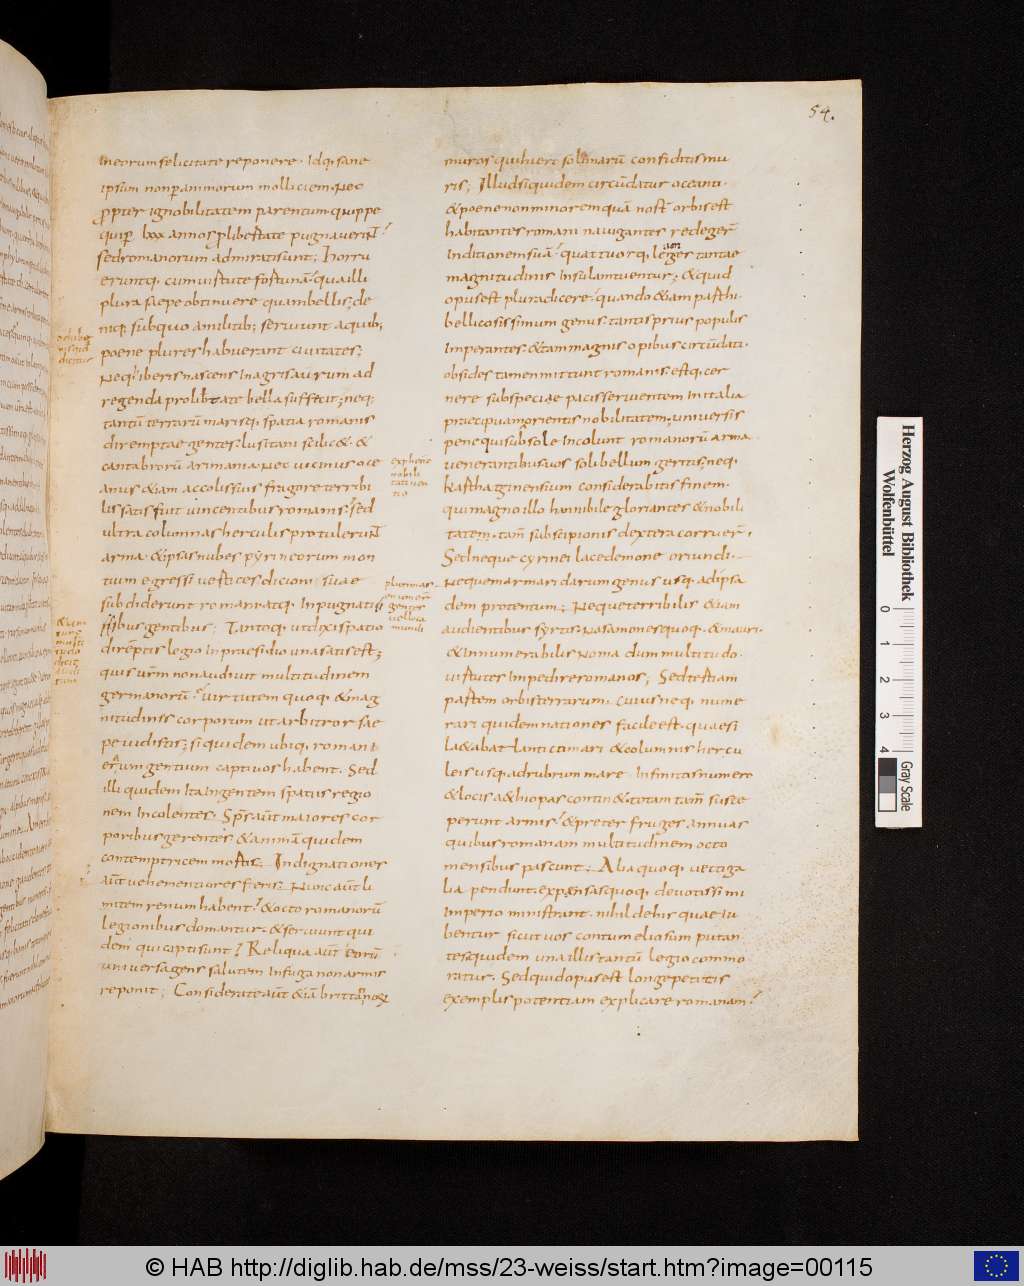 54.
in eorum felicitate reponere. Idq; sane
ipsum non p animorum molliciem. Nec
ppter ignobilitatem parentum. quippe
quip lxxx annos p libertate pugnauerint?
sed romanorum admirati sunt; horru
eruntq, cum uirtute fortunā quia illi
plura saepe obtinuere quam bellis; de
niq; sub quo a militib; seruiunt a quib;
poene plures habuerant ciuitates;
Neq; iberis nascens in agris aurum ad
regenda pro libertate bella suffecit; neq;
tantū terrarū marisq. spatia romanis
diremptae gentes lusitani scilic& &
cantabrorū armania. Nec uicinus oce
anus &iam accolis suis fragore terribi
lis satis fuit uincentibus romanis. sed
ultra columnas herculis protulerunt
arma. & ipsas nubes pyrineorum mon
tium egressi uertices dicioni suae
subdiderunt romanatq. Inpugnatis
simus gentibus; Tantoq. ut dixi spatio
direptis legio in praesidio una satis est;
quis urm non audiuit multitudinem
germanorū. uirtutem quoq. &mag
nitudinis corporum ut arbitror sae
pe uidistis; siquidem ubiq. romani
eorum gentium captiuos habent. Sed
illi quidem ita ingentem spatiis regio
nem incolentes. Sps aūt maiores cor
poribus gerentes & animā quidem
contemptricem mortis. Indignationes
aūt uehementiores feris. Nunc aūt li
mitem renum habent. & octo romanorū
legionibus domantur. & seruiunt qui
dem qui capti sunt? Reliqua aūt eorū
uniuersa gens salutem in fuga non armis
reponit; Considerate aūt &iā brittannorum
explicare
nobili
tati uen
tio
plurimas
enumer
gentes
uellica
mundi
muros qui hierosolimarū confiditis mu
ris; Illud siquidem circūdatur oceani.
& poene non minorem quā nost orbis est
habitantes romani nauigantes redeger
in ditionem suā. quattuorq, legiones tantae
magnitudinis insulam tuentur; & quid
opus est plura dicere. quando &iam parthi.
bellicosissimum genus. tantis prius populis
imperantes & tam magnis opibus circūdati.
obsides tamen mittunt romanis. estq. cer
nere sub speciae pacis seruientem in italia
praecipuam orientis nobilitatem. uniuersis
pene qui sub sole incolunt romanorū arma
uenerantibus uos soli bellum geritis; neq.
Karthaginensium considerabitis finem.
qui magno illo hannibile gloriantes & nobili
tatem. tam sub scipionis dextera corruer.
Sed neque cyrinei lacedemone oriundi.
Neque marmaridarum genus usq. ad ipsa
dem protentum; Neque terribilis &iam
audientibus syrtis. Nasamonesquoq. & mauri.
& innumerabilis Noma dum multitudo.
uirtutes impedire romanos; Sed tertiam
partem orbis terrarum. cuius neq. nume
rari quidem nationes facile est. quae si
la & ab atlantici mari & columnis hercu
leis usq. ad rubrum mare. infinitis numero
& locis aethiopas contin& totam tam susce
perunt armis. & preter fruges annuas
quibus romanam multitudinem octo
mensibus pascunt; Alia quoq. uectiga
lia pendunt. expensasquoq. deuotissimi
imperio ministrant. nihil de his quae iu
bentur sicut uos contumeliosum putan
tes quidem una illis tantū legio commo
ratur. Sed quid opus est longe petitis
exemplis potentiam explicare romanam?
Herzog August Bibliothek
Wolfenbüttel
0 1 2 3 4
Gray Scale
© HAB http://diglib.hab.de/mss/23-weiss/start.htm?image=00115